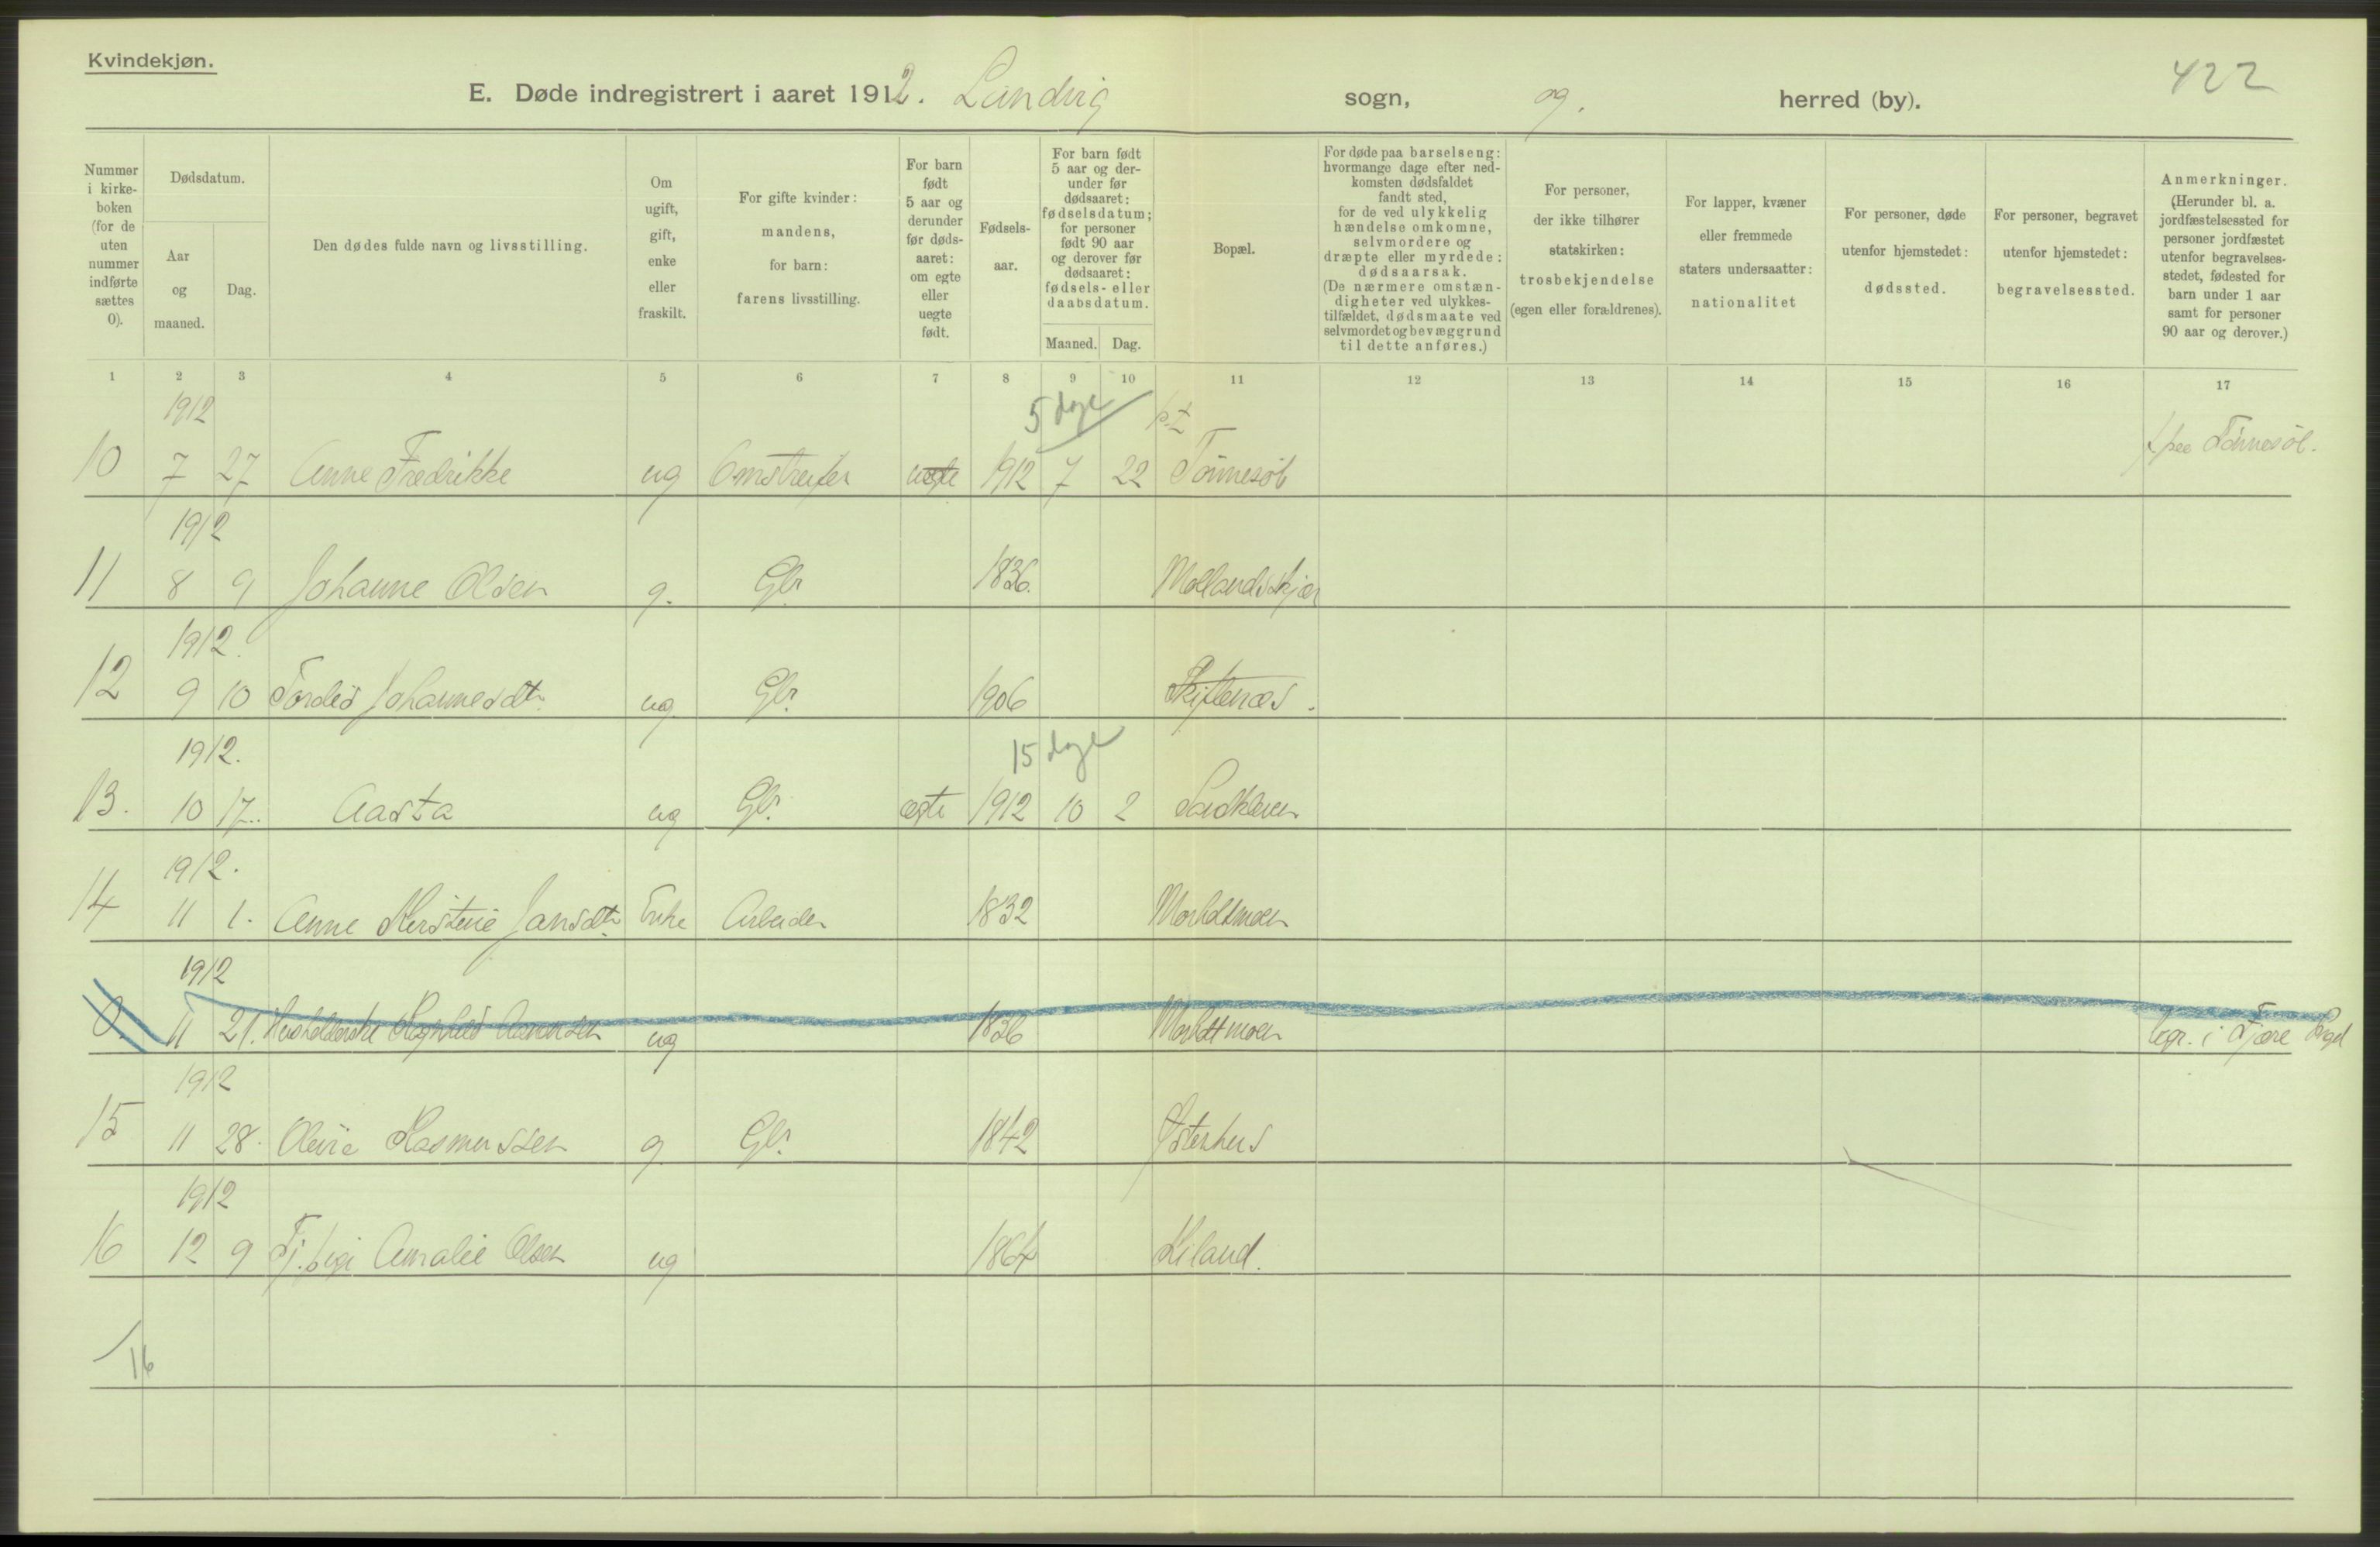 Kvindekjøn.
422
E. Døde indregistrert i aaret 1912. Landvig sogn, og. herred (by).
Nummer i kirke- boken (for de uten nummer indførte sættes 0).
Dødsdatum.
Aar og maaned.
Dag.
Den dødes fulde navn og livsstilling.
Om ugift, gift, enke eller fraskilt.
For gifte kvinder: mandens, for barn: farens livsstilling.
For barn født 5 aar og derunder før døds- aaret: om egte eller uegte født.
Fødsels- aar.
For barn født 5 aar og der- under før dødsaaret: fødselsdatum; for personer født 90 aar og derover før dødsaaret: fødsels- eller daabsdatum.
Maaned. Dag.
Bopæl.
For døde paa barselseng: hvormange dage efter ned- komsten dødsfaldet fandt sted, for de ved ulykkelig hændelse omkomne, selvmordere og dræpte eller myrdede: dødsaarsak. (De nærmere omstæn- digheter ved ulykkes- tilfældet, dødsmaate ved selvmordet og bevæggrund til dette anføres.)
For personer, der ikke tilhører statskirken: trosbekjendelse (egen eller forældrenes).
For lapper, kvæner eller fremmede staters undersaatter: nationalitet
For personer, døde utenfor hjemstedet: dødssted.
For personer, begravet utenfor hjemstedet: begravelsessted.
Anmerkninger. (Herunder bl. a. jordfæstelsessted for personer jordfæstet utenfor begravelses- stedet, fødested for barn under 1 aar samt for personer 90 aar og derover.)
1 2 3 4 5 6 7 8 9 10 11 12 13 14 15 16 17
1912 5 dage p.t.
10 7 27 Anne Fredrikke ug Omstreifer uegte 1912 7 22 Tönnesöl f. paa Tönnesöl.
1912
11 8 9 Johanne Olsen g. Gbr 1836. Mollandskjær
1912.
12 9 10 Tordis Johannesdtr. ug. Gbr. 1906 Skiftenæs.
1912. 15 dage
13. 10 17. Aasta ug Gbr. egte 1912 10 2
1912.
14 11 1. Anne Kerstine Jansdtr. Enke Arbeider 1832 Morholtmoen
1912
0. 11 21. Husholderske Ragnhild Aanonsen ug 1836 Morholtmoen begr. i Fjære
1912
15 11 28. Olevie Rasmussen g. Gbr. 1842 Østerhus
1912
16 12 9 Tj.pige Amalie Olsen ug 1864 Kiland.
16